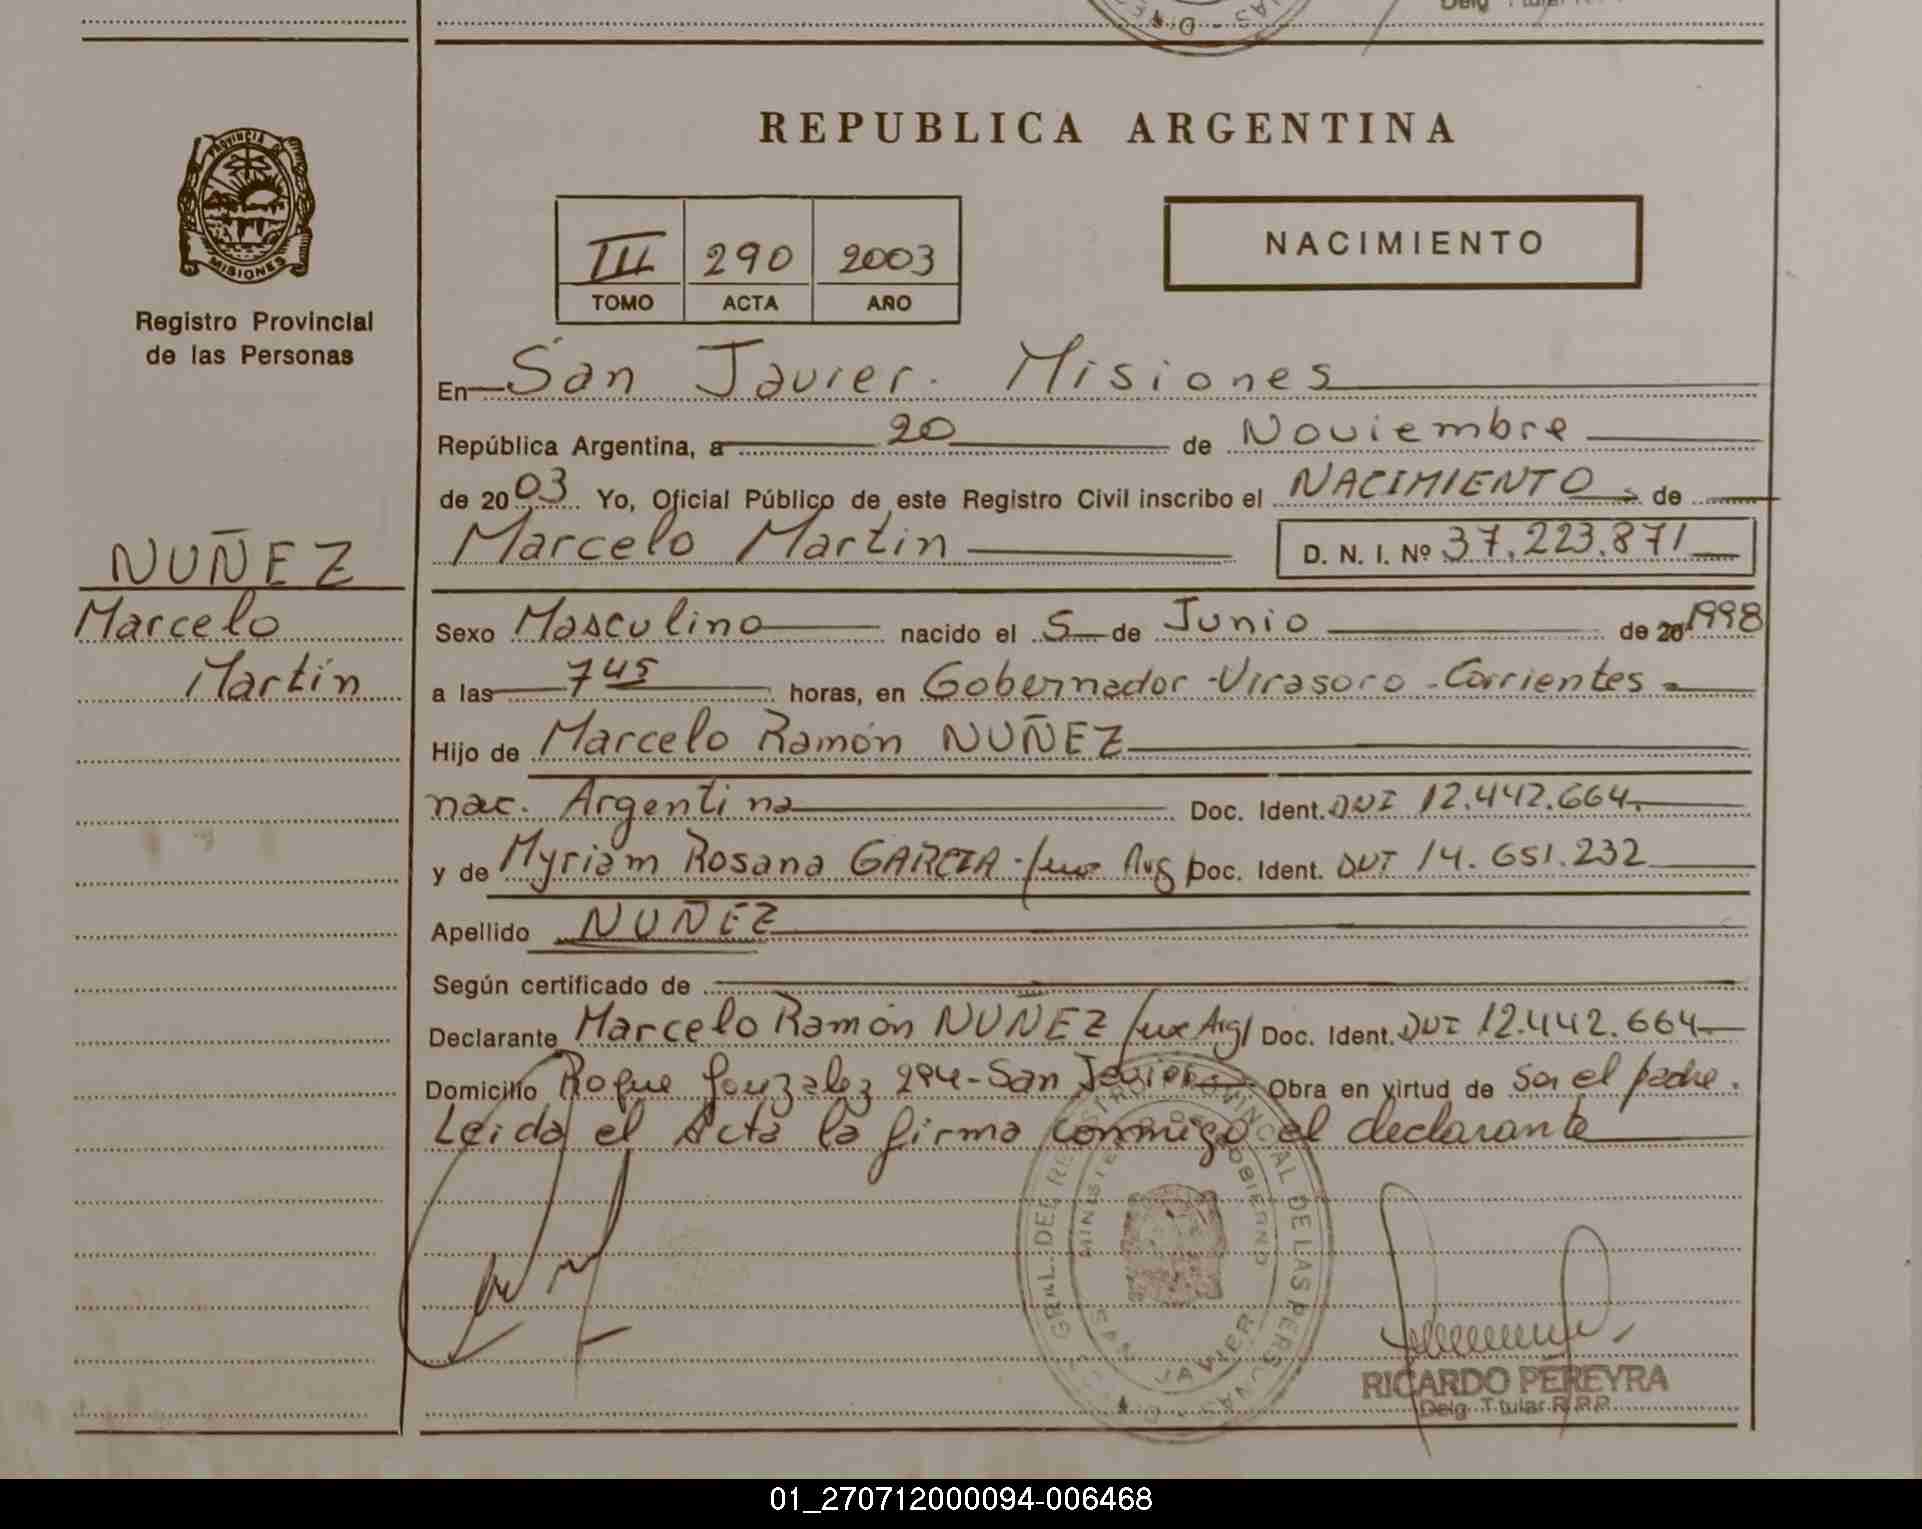 REPUBLICA ARGENTINA
PROVINCIA D
MISIONES
Registro Provincial
de las Personas
III 290 2003
TOMO ACTA AÑO
NACIMIENTO
En San Javier. Misiones
República Argentina, a 20 de Noviembre
de 2003 Yo, Oficial Público de este Registro Civil inscribo el NACIMIENTO de
Marcelo Martin D. N. I. Nº 37.223.871
NUÑEZ
Marcelo
Martín
Sexo Masculino nacido el 5 de Junio de 20 1998
a las 7 45 horas, en Gobernador - Virasoro - Corrientes
Hijo de Marcelo Ramón NUÑEZ
nac. Argentina Doc. Ident. DNI 12.442.664
y de Myriam Rosana GARCIA Arg Doc. Ident. DNI 14.651.232
Apellido NUÑEZ
Según certificado de
Declarante Marcelo Ramón NUÑEZ Arg Doc. Ident. DNI 12.442.664
Domicilio Roque Gonzalez 294 - San Javier Obra en virtud de Ser el padre.
Leida el Acta la firma conmigo el declarante
GRAL. DEL REGISTRO PROVINCIAL DE LAS PERSONAS
MINISTERIO DE GOBIERNO
SAN JAVIER
RICARDO PEREYRA
Delg. Titular R.P.P.
01_270712000094-006468